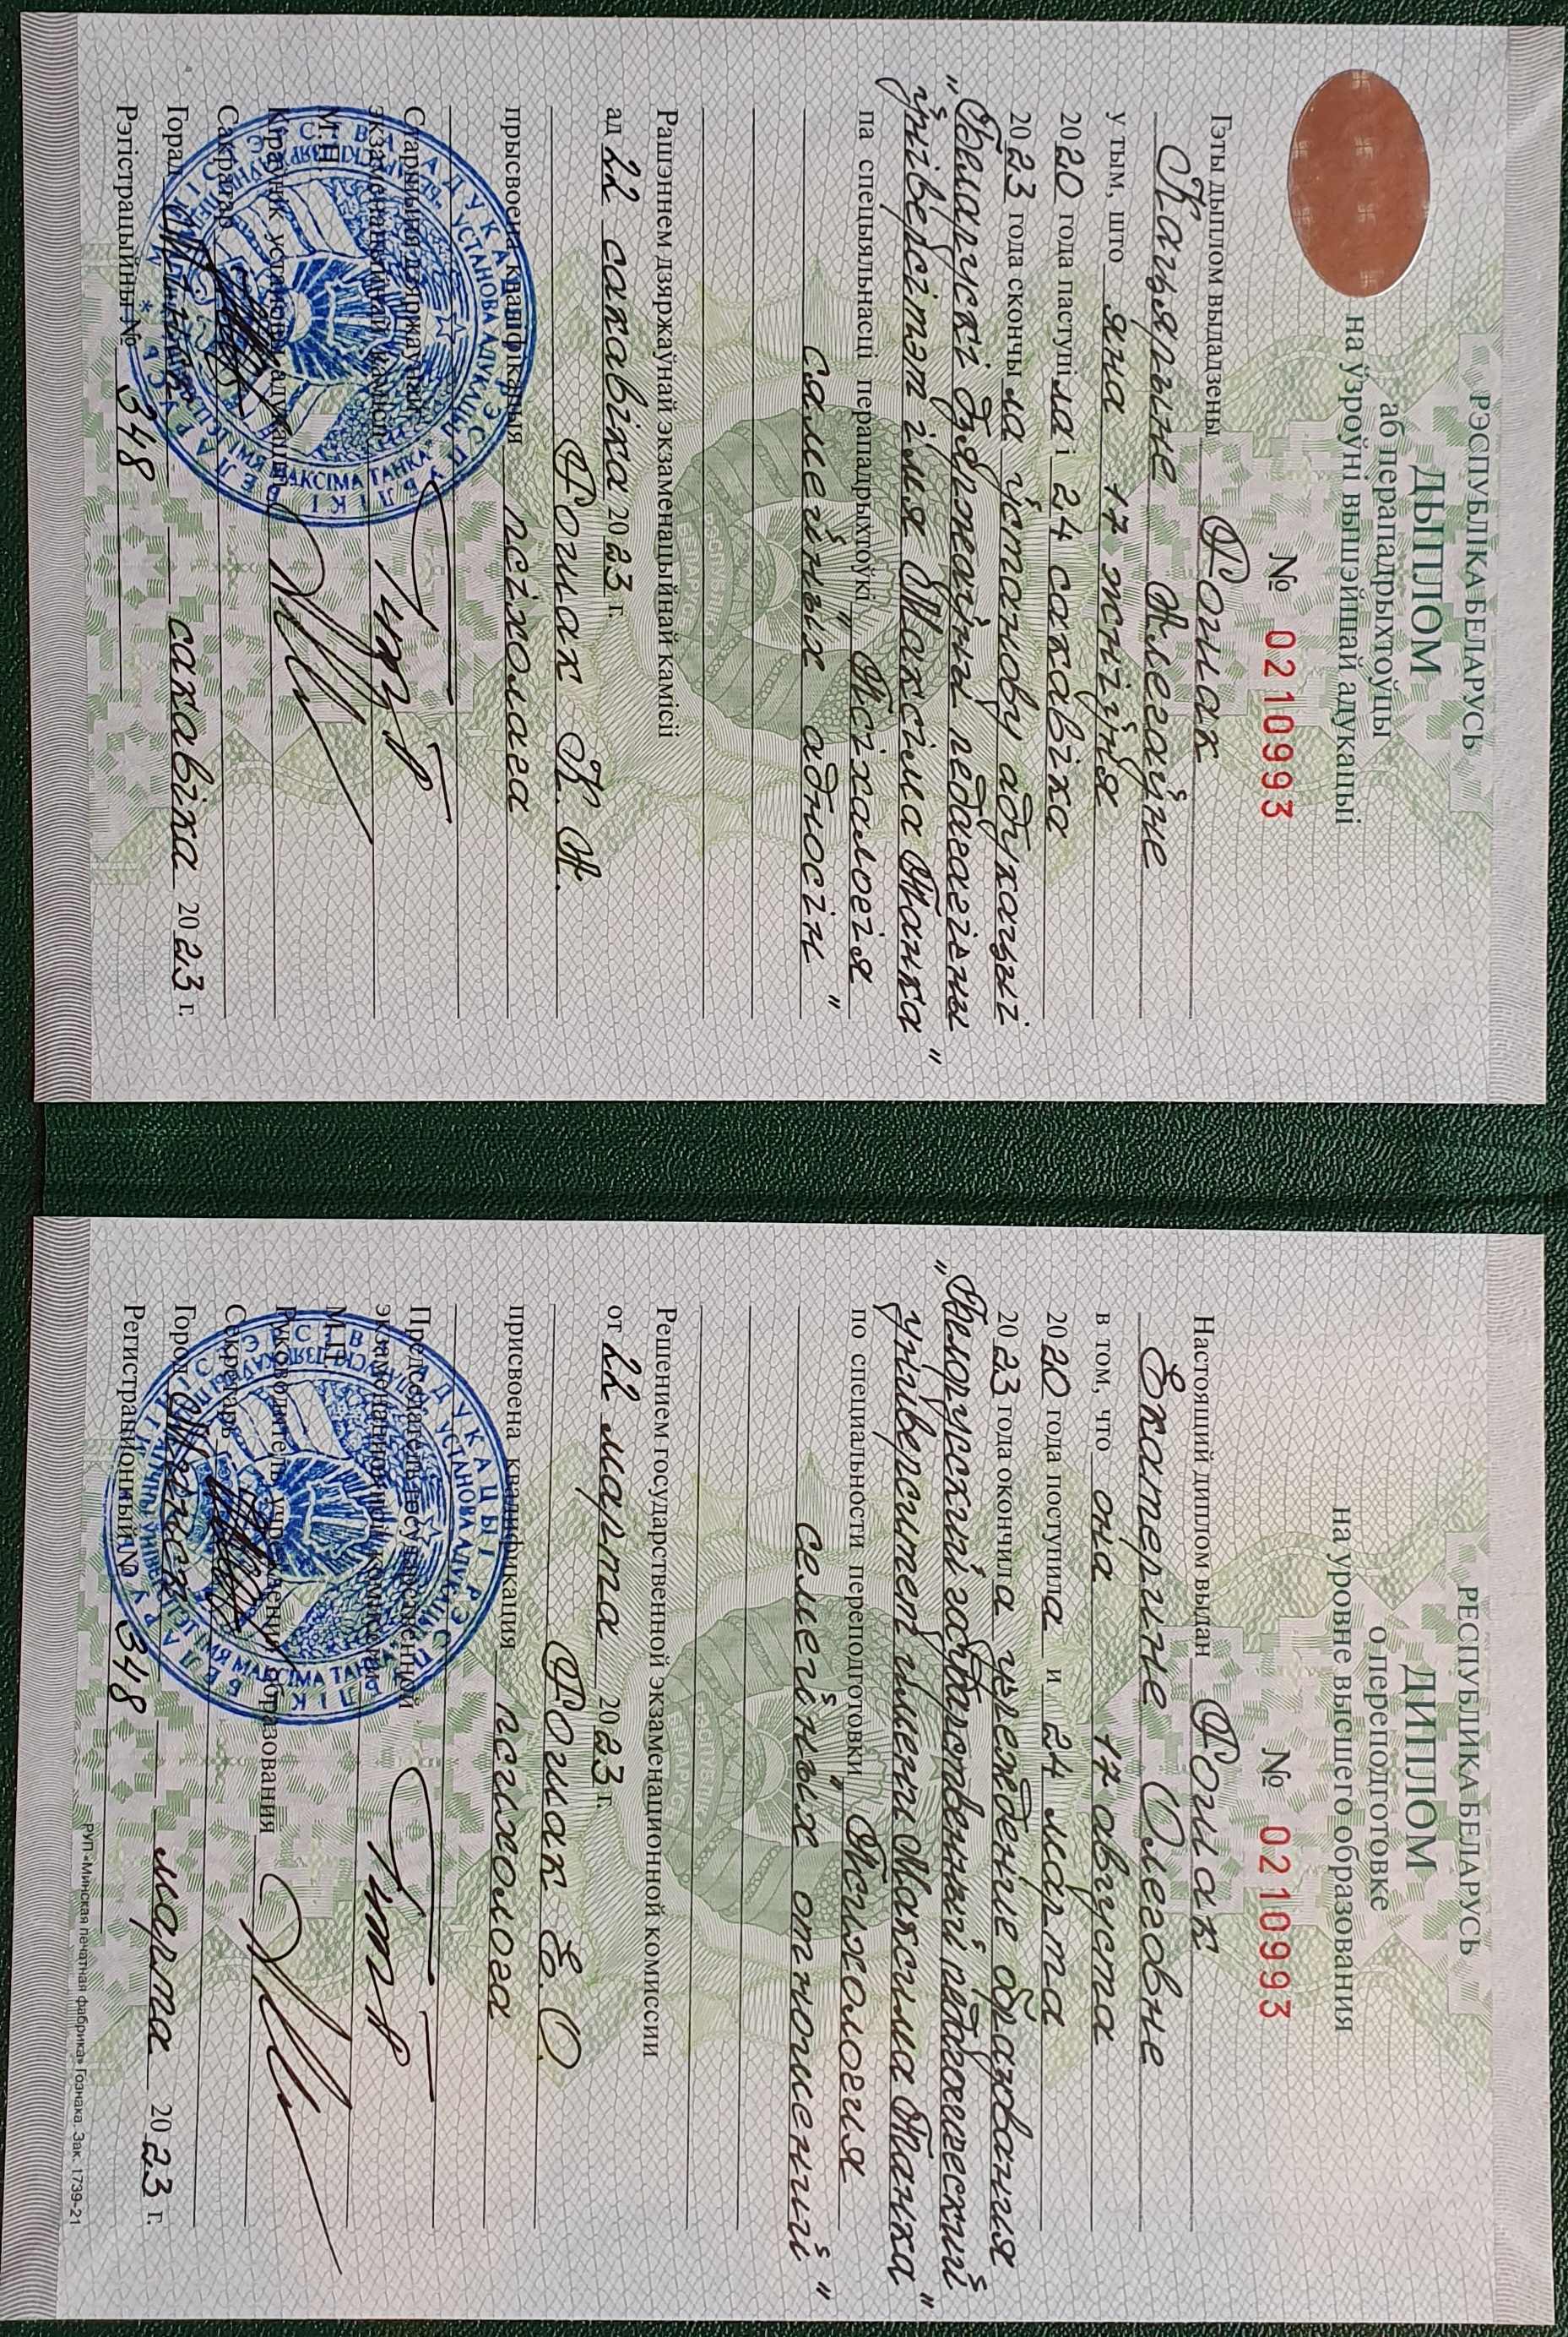 РЭСПУБЛІКА БЕЛАРУСЬ
ДЫПЛОМ
аб перападрыхтоўцы
на ўзроўні вышэйшай адукацыі
№ 0210993
Гэты дыплом выдадзены Фошак
Кацярыне Алегаўне
у тым, што яна 17 жніўня
2020 года паступіла і 24 сакавіка
2023 года скончыла ўстанову адукацыі
„Беларускі дзяржаўны педагагічны
ўніверсітэт імя Максіма Танка"
па спецыяльнасці перападрыхтоўкі „Псіхалогія
сямейных адносін"
Рашэннем дзяржаўнай экзаменацыйнай камісіі
ад 22 сакавіка 2023 г.
Фошак К. А.
прысвоена кваліфікацыя псіхолага
Старшыня дзяржаўнай
экзаменацыйнай камісіі
М.П.
Кіраўнік установы адукацыі
Сакратар
Горад Мінск сакавіка 2023 г.
Рэгістрацыйны № 348
РЕСПУБЛИКА БЕЛАРУСЬ
ДИПЛОМ
о переподготовке
на уровне высшего образования
№ 0210993
Настоящий диплом выдан Фошак
Екатерине Олеговне
в том, что она 17 августа
2020 года поступила и 24 марта
2023 года окончила учреждение образования
„Белорусский государственный педагогический
университет имени Максима Танка"
по специальности переподготовки „Психология
семейных отношений"
Решением государственной экзаменационной комиссии
от 22 марта 2023 г.
Фошак Е. О.
присвоена квалификация психолога
Председатель государственной
экзаменационной комиссии
М.П.
Руководитель учреждения образования
Секретарь
Город Минск марта 2023 г.
Регистрационный № 348
РУП «Минская печатная фабрика» Гознака. Зак. 1739-21